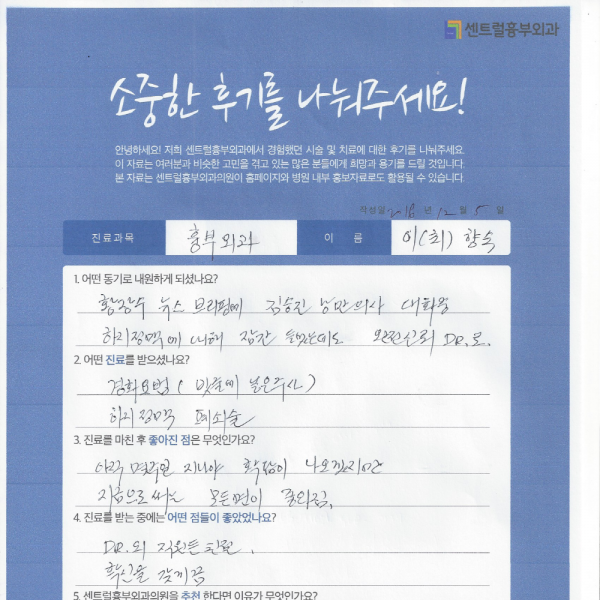 센트럴흉부외과
소중한 후기를 나눠주세요!
안녕하세요! 저희 센트럴흉부외과에서 경험했던 시술 및 치료에 대한 후기를 나눠주세요.
이 자료는 여러분과 비슷한 고민을 겪고 있는 많은 분들에게 희망과 용기를 드릴 것입니다.
본 자료는 센트럴흉부외과의원이 홈페이지와 병원 내부 홍보자료로도 활용될 수 있습니다.
작성일 2018 년 12 월 5 일
진료과목 흉부외과 이 름 이(최) 향숙
1. 어떤 동기로 내원하게 되셨나요?
황장수 뉴스 브리핑에 김승진 낭만의사 대화중
하지정맥에 대해 잠깐 들었는데도 완전신뢰 DR.로.
2. 어떤 진료를 받으셨나요?
경화요법 ( 빛들에 넣은주사 )
하지정맥 폐쇄술
3. 진료를 마친 후 좋아진 점은 무엇인가요?
아직 며칠은 지나야 확답이 나오겠지만
지금으로써는 모든면이 좋아짐.
4. 진료를 받는 중에는 어떤 점들이 좋았었나요?
DR.의 직원든 친절.
확신을 갖게끔
5. 센트럴흉부외과의원을 추천 한다면 이유가 무엇인가요?